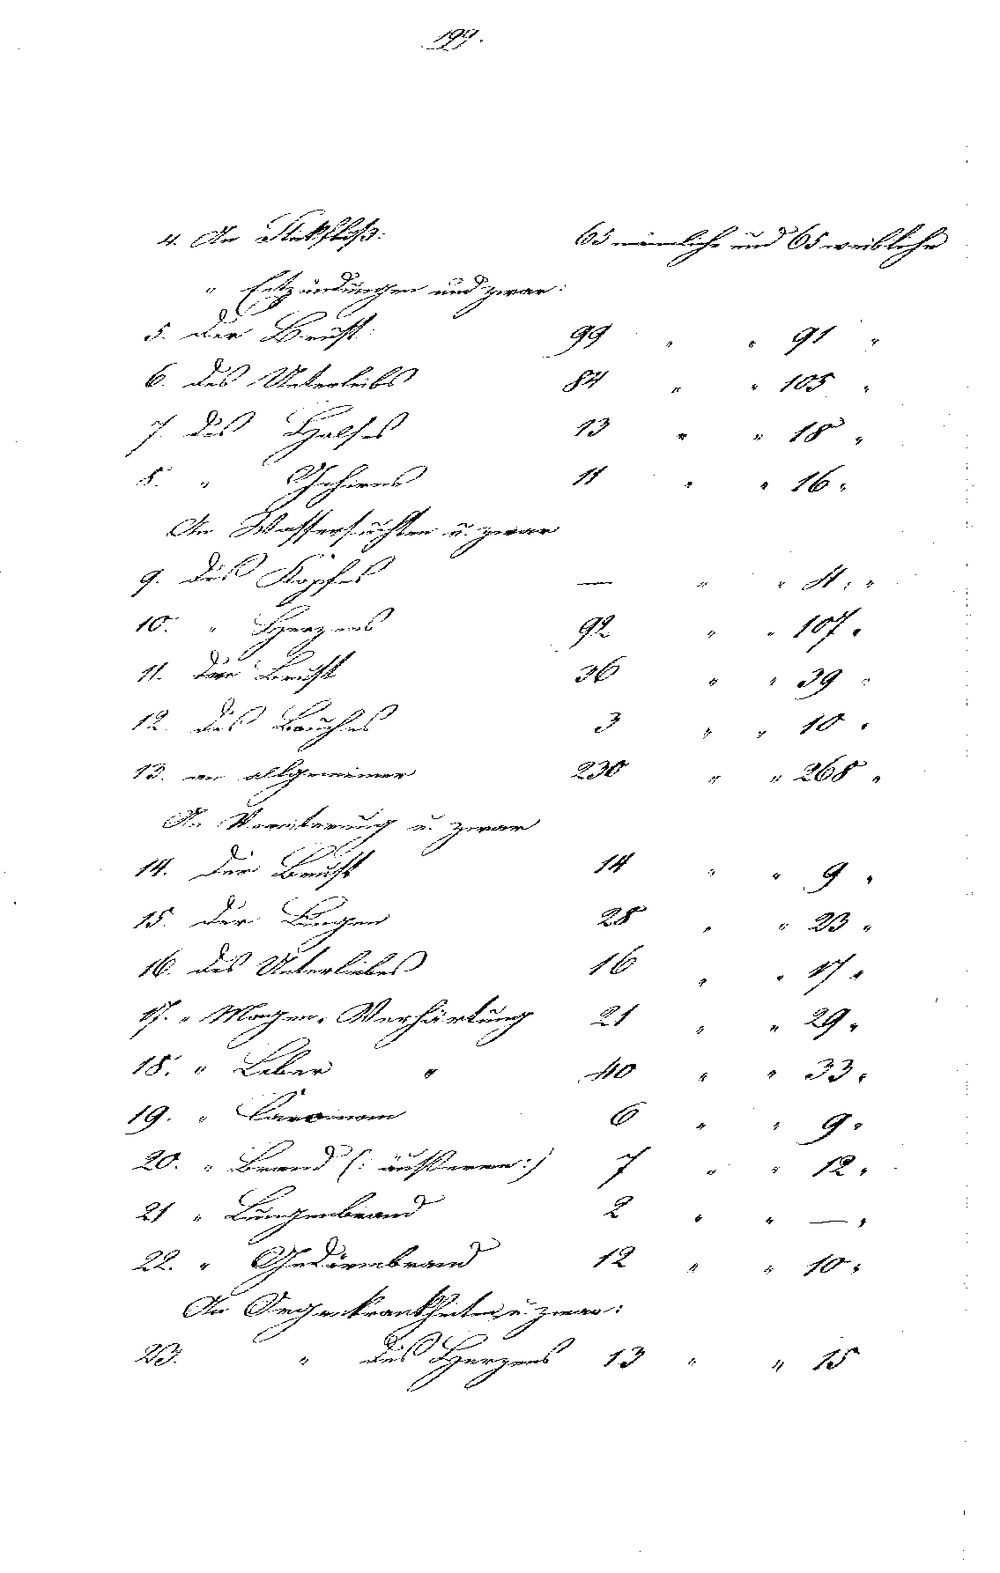 199.
4. An Stickfluß: 65 männliche und 65 weibliche
" Entzündungen und zwar:
5. der Brust: 99 " " 91 "
6. des Unterleibs 84 " " 105 "
7. des Halses 13 " " 18 "
8. " Gehirns 11 " " 16 "
An Wassersuchten u. zwar
9. des Kopfes — " " 4. "
10. " Herzens 92 " " 107 "
11. der Brust 36 " " 39 "
12. des Bauches 3 " " 10 "
13. an allgemeiner 230 " " 268 "
An Vereiterung u. zwar
14. der Brust 14 " " 9 "
15. der Lungen 28 " " 23 "
16. des Unterleibes 16 " " 17 "
17. " Magen-Verhärtung 21 " " 29 "
18. " Leber " 40 " " 33 "
19. " Carcinom 6 " " 9 "
20. " Brand (: äußeren :) 7 " " 12 "
21 " Lungenbrand 2 " " — "
22. " Gedärmbrand 12 " " 10 "
An Organkrankheiten u. zwar:
23. " des Herzens 13 " " 15